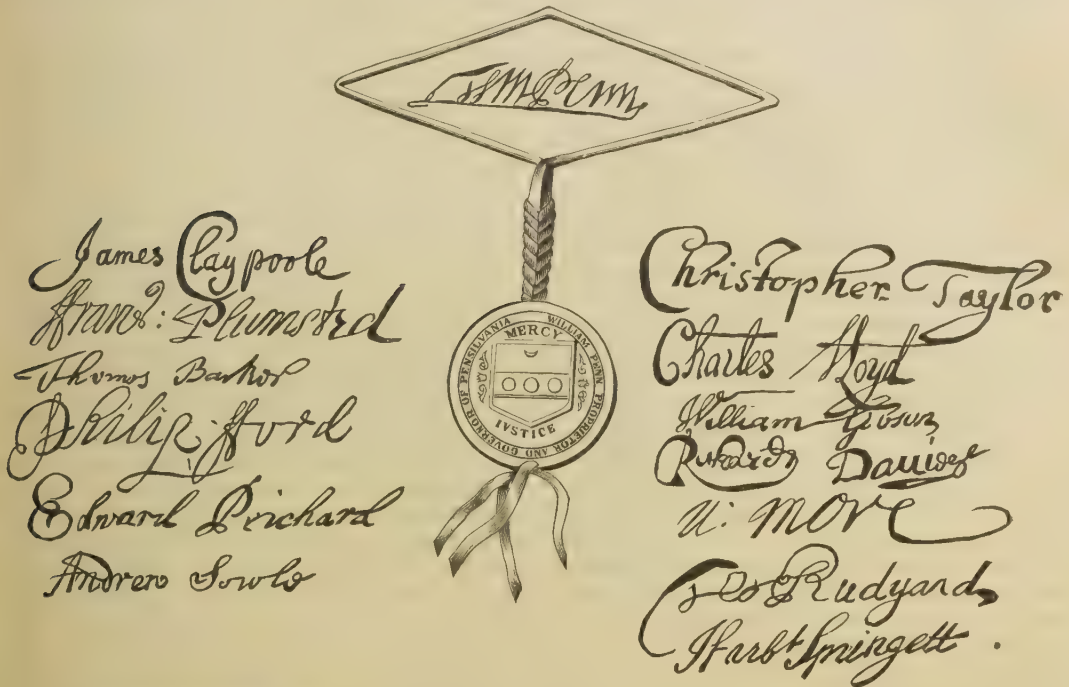 Wm Penn
James Claypoole
ffranc: Plumsted
Thomas Barker
Philip fford
Edward Prichard
Andrew Sowle
MERCY
IVSTICE
WILLIAM PENN PROPRIETOR AND GOVERNOR OF PENSILVANIA
Christopher Taylor
Charles Lloyd
William Gibson
Richard Davies
N: More
Tho Rudyard
Harbt Springett.